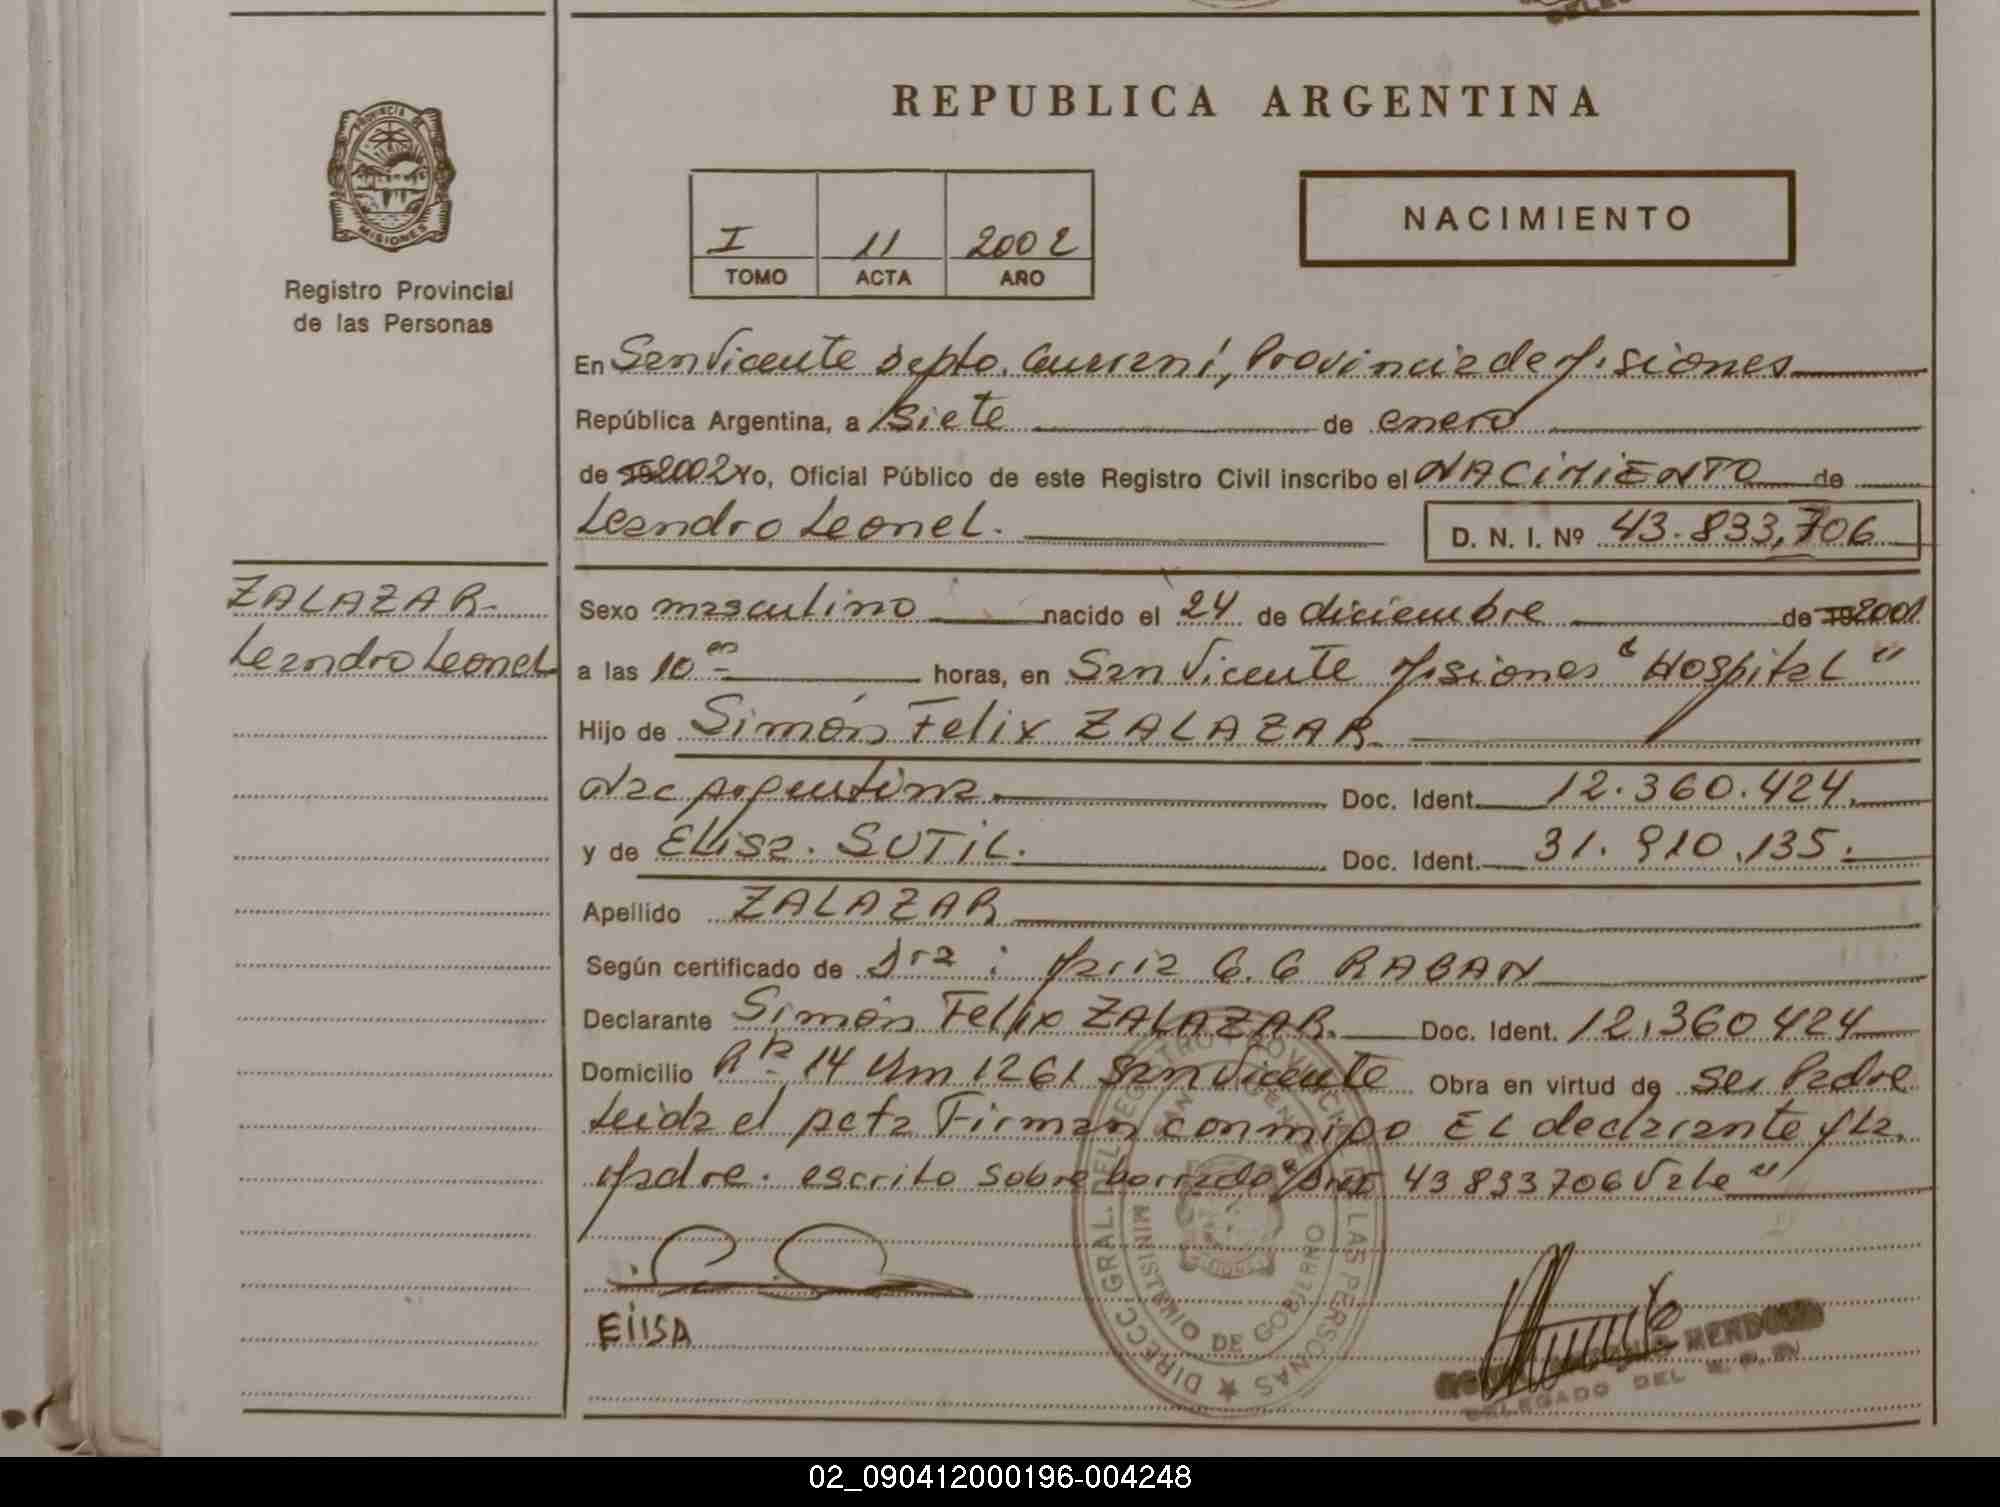 REPUBLICA ARGENTINA
PROVINCIA DE
MISIONES
Registro Provincial
de las Personas
I 11 2002
TOMO ACTA AÑO
NACIMIENTO
En San Vicente Depto. Guaraní, Provincia de Misiones
República Argentina, a siete de enero
de 2002 Yo, Oficial Público de este Registro Civil inscribo el NACIMIENTO de
Leandro Leonel. D. N. I. Nº 43.833,706
ZALAZAR
Leandro Leonel
Sexo masculino nacido el 24 de diciembre de 2001
a las 10 horas, en San Vicente Misiones "Hospital"
Hijo de Simón Felix ZALAZAR
Nac Argentina. Doc. Ident. 12.360.424.
y de Elisa. SUTIL. Doc. Ident. 31.910.135.
Apellido ZALAZAR
Según certificado de Dra: Maria G. G RABAN
Declarante Simón Felix ZALAZAR. Doc. Ident. 12,360424
Domicilio 14 Km 1261 San Vicente Obra en virtud de ser Padre
Leida el acta Firman conmigo El declarante y la
Madre. escrito sobre borrado "DNI 43833706 Vale"
DIRECC. GRAL. DEL REGISTRO PROVINCIAL DE LAS PERSONAS
MINISTERIO DE GOBIERNO
EliSA
MENDOZA
DELEGADO DEL
02_090412000196-004248